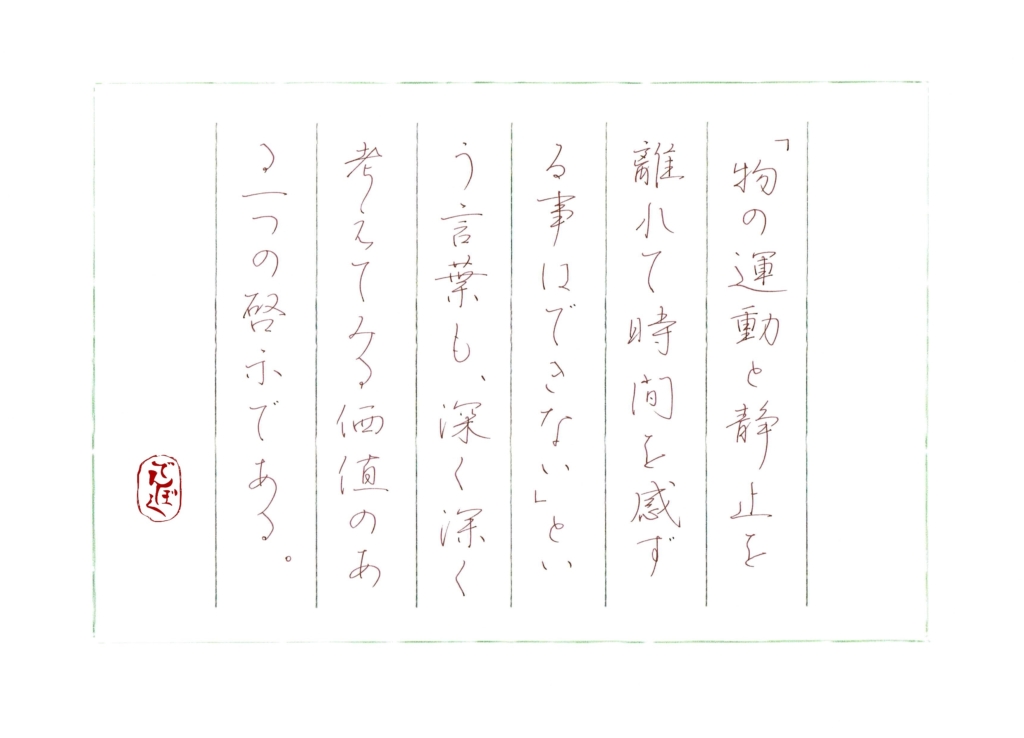 「物の運動と静止を
離れて時間を感ず
る事はできない」とい
う言葉も、深く深く
考えてみる価値のあ
る一つの啓示である。
でんぼ